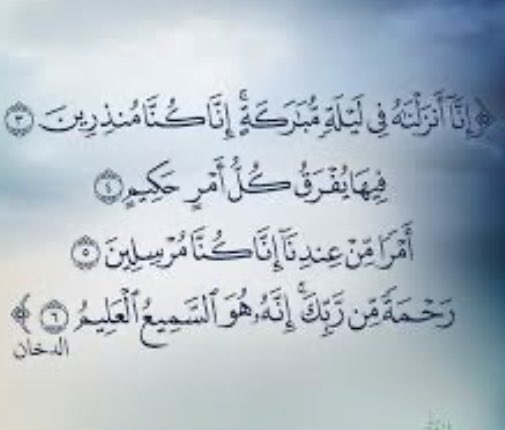 ﴿ إِنَّآ أَنزَلْنَٰهُ فِى لَيْلَةٍ مُّبَٰرَكَةٍ ۚ إِنَّا كُنَّا مُنذِرِينَ ٣
فِيهَا يُفْرَقُ كُلُّ أَمْرٍ حَكِيمٍ ٤
أَمْرًا مِّنْ عِندِنَآ إِنَّا كُنَّا مُرْسِلِينَ ٥
رَحْمَةً مِّن رَّبِّكَ ۚ إِنَّهُۥ هُوَ ٱلسَّمِيعُ ٱلْعَلِيمُ ٦ ﴾
الدخان